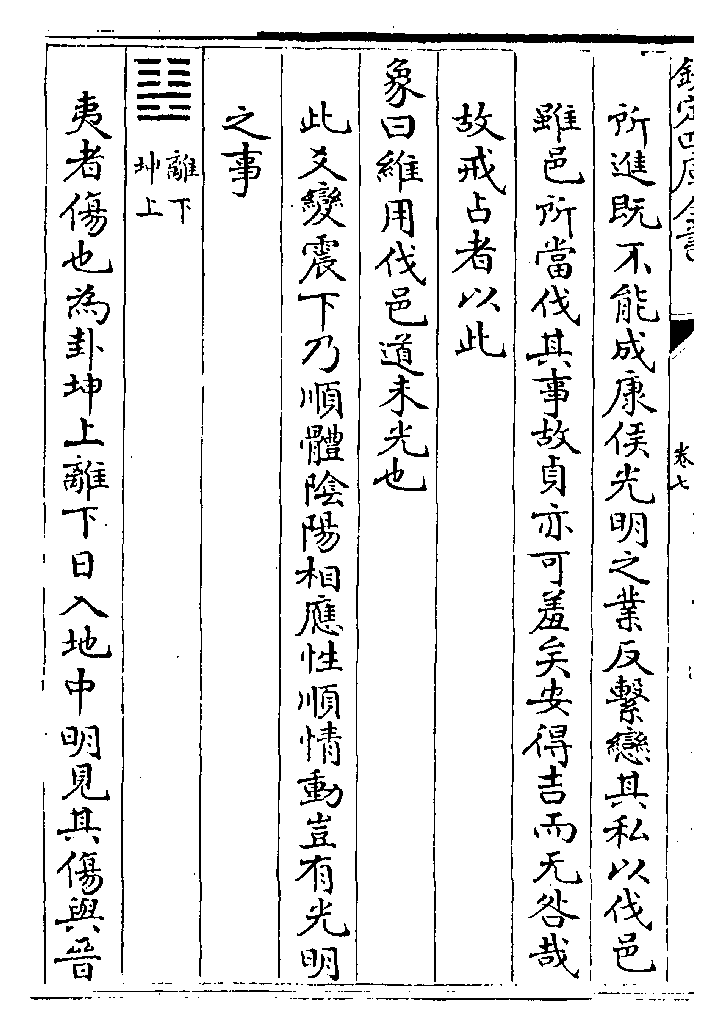 欽定四庫全書
卷七
所進既不能成康侯光明之業反繫戀其私以伐邑
雖邑所當伐其事故貞亦可羞矣安得吉而无咎哉
故戒占者以此
象曰維用伐邑道未光也
此爻變震下乃順體陰陽相應性順情動豈有光明
之事
離下
坤上
夷者傷也為卦坤上離下日入地中明見其傷與晉